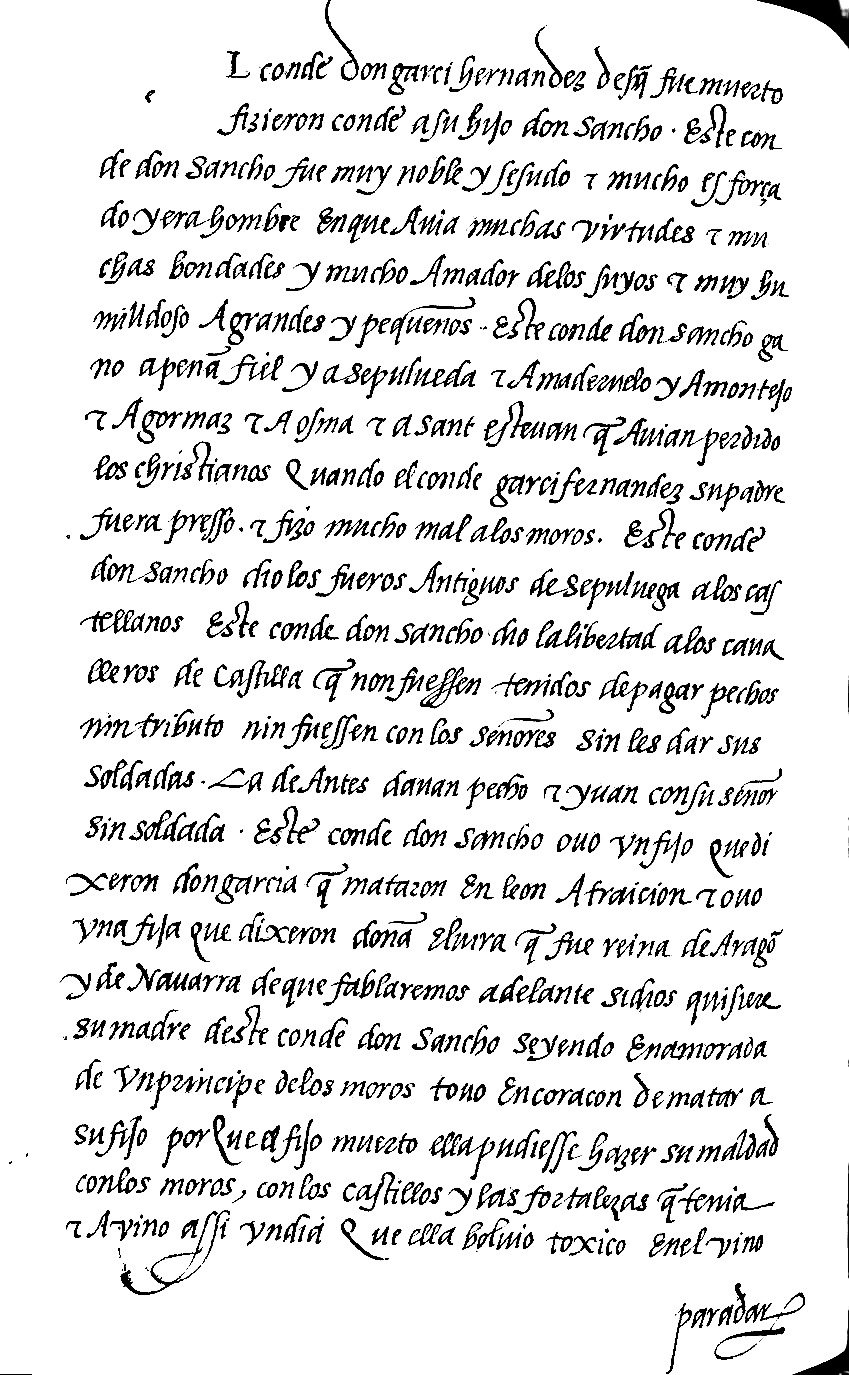 L conde don garci hernandez desq̃ fue muerto
fizieron conde a su hijo don Sancho · Este con
de don Sancho fue muy noble y sesudo ⁊ mucho esforça
do y era hombre En que Auia muchas virtudes ⁊ mu
chas bondades y mucho Amador de los suyos ⁊ muy hu
milldoso A grandes y pequenos · Este conde don Sancho ga
no a penã fiel y a Sepulueda ⁊ A maderuelo y A montejo
⁊ A gormaz ⁊ A osma ⁊ a Sant esteuan q̃ Auian perdido
los christianos Quando el conde garci fernandez su padre
fuera presso · ⁊ fizo mucho mal a los moros. Este conde
don Sancho dio los fueros Antiguos de Sepuluega a los cas
tellanos Este conde don Sancho dio la libertad a los caua
lleros de Castilla q̃ non fuessen tenidos de pagar pechos
nin tributo nin fuessen con los señores sin les dar sus
Soldadas · La de Antes dauan pecho ⁊ yuan con su señor
Sin soldada · Este conde don Sancho ouo vn fijo Que di
xeron don garcia q̃ mataron En leon A traicion ⁊ ouo
vna fija Que dixeron donã Eluira q̃ fue reina de Aragõ
y de Nauarra de que fablaremos adelante si dios quisiere
Su madre deste conde don Sancho seyendo Enamorada
de vn principe de los moros touo En coracon de matar a
su fijo porQue el fijo muerto ella pudiesse hazer su maldad
con los moros, con los castillos y las fortalezas q̃ tenia
⁊ A vino assi vn dia Que ella boluio toxico En el vino
para dar